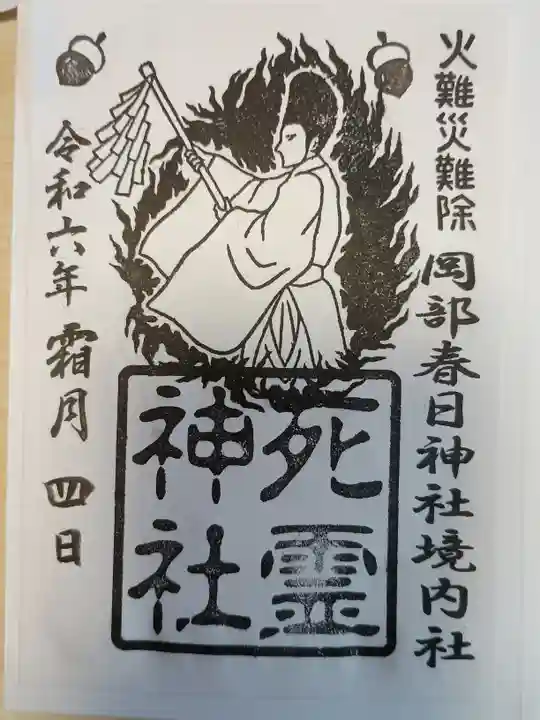 火難災難除
岡部春日神社境内社
死霊
神社
令和六年 霜月 四日